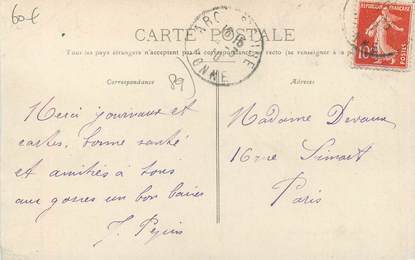 60€
CARTE POSTALE
Tous les pays étrangers n'acceptent pas la correspondance au recto (se renseigner à la p
Correspondance
Adresse
89
YONNE
RÉPUBLIQUE FRANÇAISE
10
Merci journaux et
cartes, bonne santé
et amitiés à tous
aux gosses un bon baiser
Madame Devaux
16 rue Simart
Paris